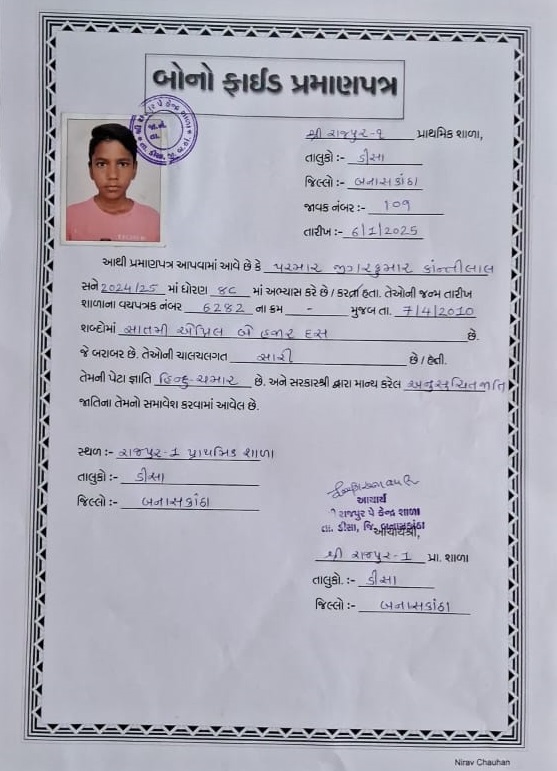 બોનો ફાઈડ પ્રમાણપત્ર
શ્રી રાજપુર-૧ પ્રાથમિક શાળા,
તાલુકો :- ડીસા
જિલ્લો :- બનાસકાંઠા
જાવક નંબર :- 109
તારીખ :- 6/1/2025
આથી પ્રમાણપત્ર આપવામાં આવે છે કે પરમાર જીગરકુમાર કાંન્તીલાલ
સને 2024/25 માં ધોરણ 8C માં અભ્યાસ કરે છે / કરતા હતા. તેઓની જન્મ તારીખ
શાળાના વયપત્રક નંબર 6282 ના ક્રમ - મુજબ તા. 7/4/2010
શબ્દોમાં સાતમી એપ્રિલ બે હજાર દસ છે.
જે બરાબર છે. તેઓની ચાલચલગત સારી છે / હતી.
તેમની પેટા જ્ઞાતિ હિન્દુ-ચમાર છે. અને સરકારશ્રી દ્વારા માન્ય કરેલ અનુસુચિતજાતિ
જાતિના તેમનો સમાવેશ કરવામાં આવેલ છે.
સ્થળ :- રાજપુર-1 પ્રાથમિક શાળા
તાલુકો :- ડીસા
જિલ્લો :- બનાસકાંઠા
આચાર્ય
રાજપુર પે કેન્દ્ર શાળા
તા. ડીસા, જિ. બનાસકાંઠા
આચાર્યશ્રી,
શ્રી રાજપુર-1 પ્રા. શાળા
તાલુકો. :- ડીસા
જિલ્લો :- બનાસકાંઠા
Nirav Chauhan